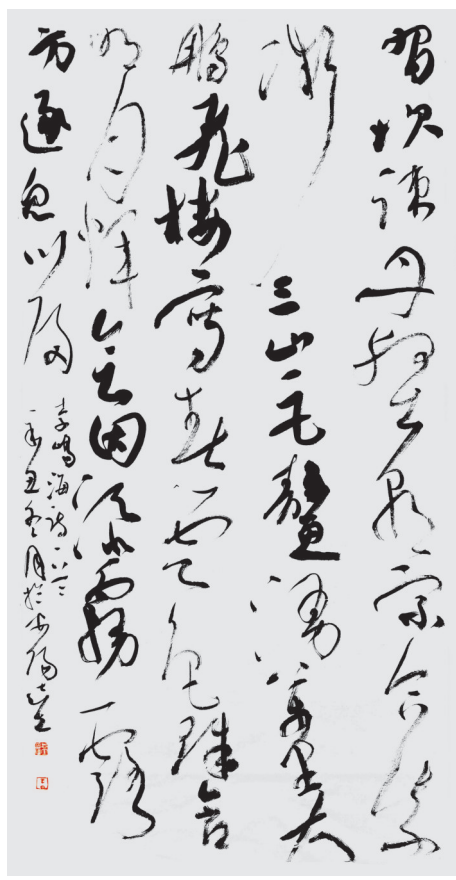 習坎疎丹壑朝宗合紫
微三山巨鰲湧萬里大
鵬飛樓寫春雲色珠含
明月輝會因添霧露
方逐眾川歸
李嶠海詩一首
辛丑冬月於